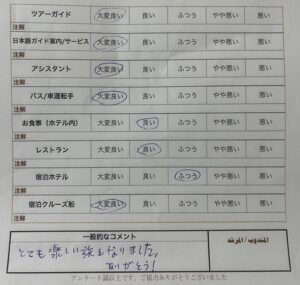 ツアーガイド 大変良い 良い ふつう やや悪い 悪い
注解
日本語ガイド案内/サービス 大変良い 良い ふつう やや悪い 悪い
注解
アシスタント 大変良い 良い ふつう やや悪い 悪い
注解
バス/車運転手 大変良い 良い ふつう やや悪い 悪い
注解
お食事(ホテル内) 大変良い 良い ふつう やや悪い 悪い
注解
レストラン 大変良い 良い ふつう やや悪い 悪い
注解
宿泊ホテル 大変良い 良い ふつう やや悪い 悪い
注解
宿泊クルーズ船 大変良い 良い ふつう やや悪い 悪い
注解
一般的なコメント المندوب / المرشد
とても楽しい旅となりました。
ありがとう!
アンケート誠以上です、ご協力ありがとうございました